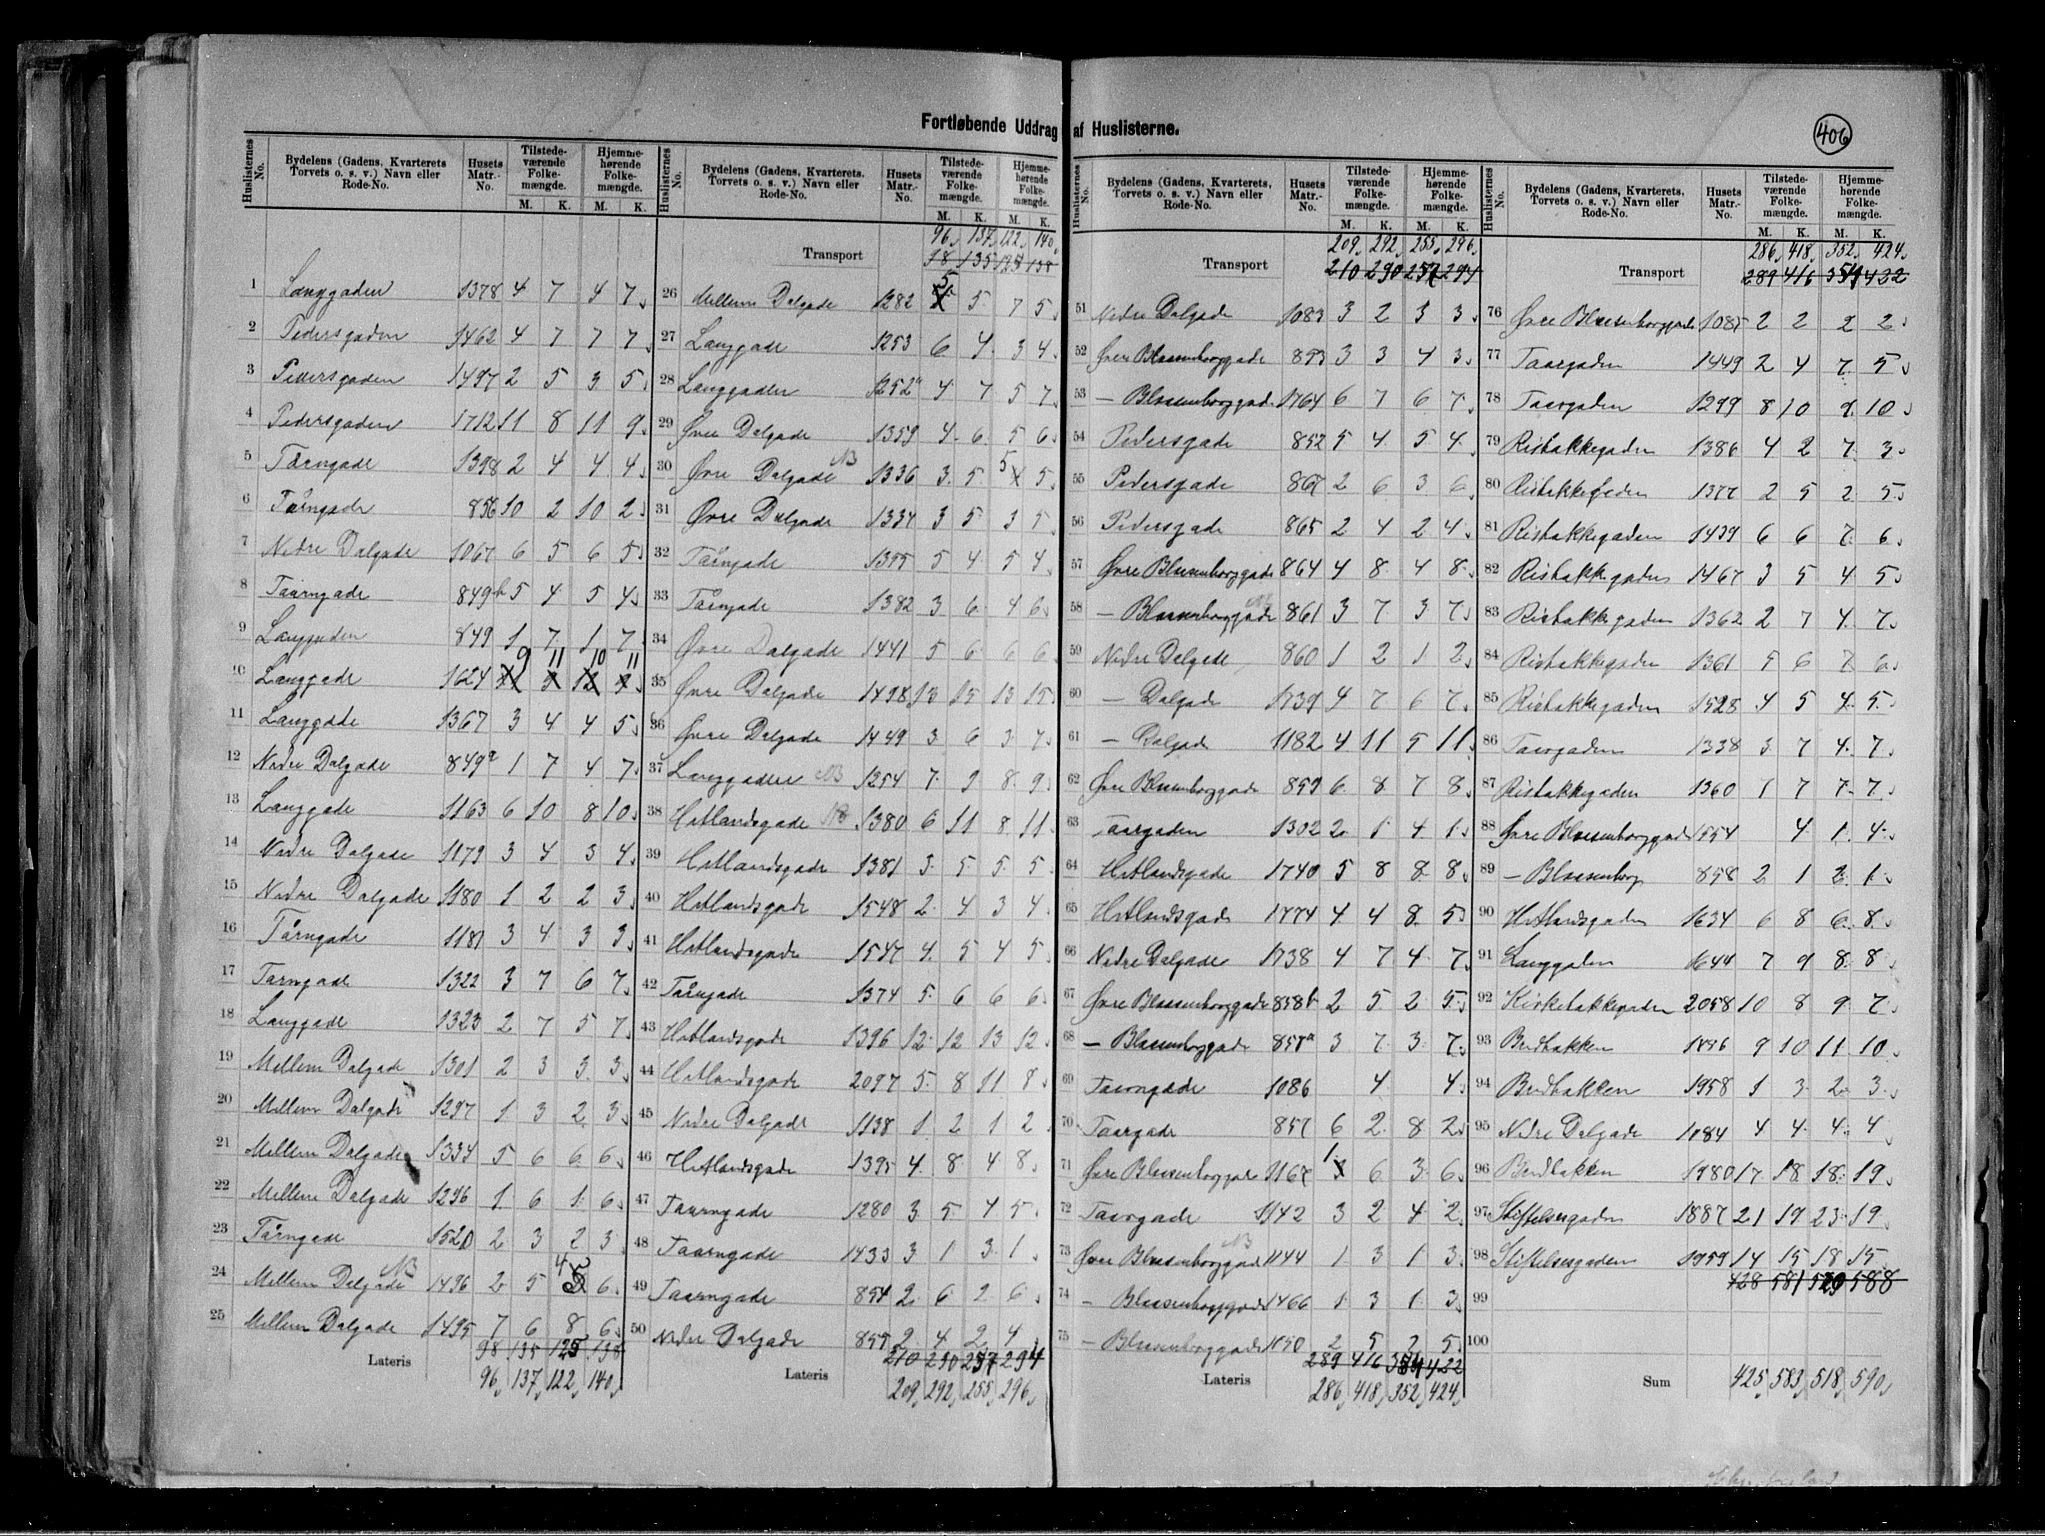 Fortløbende Uddrag af Huslisterne.
406
Huslisternes No. Bydelens (Gadens, Kvarterets Torvets o. s. v.) Navn eller Rode-No. Husets Matr.-No. Tilstedeværende Folkemængde. M. K. Hjemmehørende Folkemængde. M. K.
1 Langgaden 1378 4 7 4 7
2 Pedersgaden 1462 4 7 7 7
3 Pedersgaden 1497 2 5 3 5
4 Pedersgaden 1712 11 8 11 9
5 Tårngade 1398 2 4 4 4
6 Tårngade 856 10 2 10 2
7 Nedre Dalgade 1067 6 5 6 5
8 Taarngade 849b 5 4 5 4
9 Langgaden 849 1 7 1 7
10 Langgade 1624 9 11 10 11
11 Langgade 1367 3 4 4 5
12 Nedre Dalgade 849a 1 7 4 7
13 Langgade 1163 6 10 8 10
14 Nedre Dalgade 1179 3 4 3 4
15 Nedre Dalgade 1180 1 2 2 3
16 Tårngade 1181 3 4 3 3
17 Tarngade 1322 3 7 6 7
18 Langgade 1323 2 7 5 7
19 Mellem Dalgade 1301 2 3 3 3
20 Mellem Dalgade 1297 1 3 2 3
21 Mellem Dalgade 1334 5 6 6 6
22 Mellem Dalgade 1296 1 6 1 6
23 Tårngade 1520 2 3 2 3
24 Mellem Dalgade NB 1496 2 5 4 6
25 Mellem Dalgade 1495 7 6 8 6
98 135 125 138
Lateris 96 137 122 140
Huslisternes No. Bydelens (Gadens, Kvarterets, Torvets o. s. v.) Navn eller Rode-No. Husets Matr.-No. Tilstedeværende Folkemængde. M. K. Hjemmehørende Folkemængde. M. K.
96 137 122 140
Transport 98 135 125 138
26 Mellem Dalgade 1282 5 5 7 5
27 Langgade 1253 6 4 3 4
28 Langgaden 1252a 4 7 5 7
29 Øvre Dalgade 1359 4 6 5 6
30 Øvre Dalgade NB 1336 3 5 5 5
31 Øvre Dalgade 1334 3 5 3 5
32 Tårngade 1355 5 4 5 4
33 Tårngade 1382 3 6 4 6
34 Øvre Dalgade 1441 5 6 6 6
35 Øvre Dalgade 1498 13 15 13 15
36 Øvre Dalgade 1449 3 6 3 7
37 Langgaden NB 1254 7 9 8 9
38 Hetlandsgade NB 1380 6 11 8 11
39 Hetlandsgade 1381 3 5 5 5
40 Hetlandsgade 1548 2 4 3 4
41 Hetlandsgade 1547 4 5 4 5
42 Tårngade 1374 5 6 6 6
43 Hetlandsgade 1396 12 12 13 12
44 Hetlandsgade 2097 5 8 11 8
45 Nedre Dalgade 1138 1 2 1 2
46 Hetlandsgade 1395 4 8 4 8
47 Taarngade 1280 3 5 4 5
48 Taarngade 1433 3 1 3 1
49 Taarngade 854 2 6 2 6
50 Nedre Dalgade 855 2 4 2 4
210 290 257 294
Lateris 209 292 255 296
Huslisternes No. Bydelens (Gadens, Kvarterets, Torvets o. s. v.) Navn eller Rode-No. Husets Matr.-No. Tilstedeværende Folkemængde. M. K. Hjemmehørende Folkemængde. M. K.
209 292 255 296
Transport 210 290 257 294
51 Nedre Dalgade 1083 3 2 3 3
52 Øvre Blaasenborggade 853 3 3 4 3
53 — Blaasenborggade 1764 6 7 6 7
54 Pedersgade 852 5 4 5 4
55 Pedersgade 867 2 6 3 6
56 Pedersgade 865 2 4 2 4
57 Øvre Blaasenborggade 864 4 8 4 8
58 — Blaasenborggade 861 3 7 3 7
59 Nedre Dalgade 860 1 2 1 2
60 — Dalgade 1739 4 7 6 7
61 — Dalgade 1182 4 11 5 11
62 Øvre Blaasenborggade 859 6 8 7 8
63 Taargaden 1302 2 1 4 1
64 Hetlandsgade 1740 5 8 8 8
65 Hetlandsgade 1774 4 4 8 5
66 Nedre Dalgade 1738 4 7 4 7
67 Øvre Blaasenborggade 858b 2 5 2 5
68 — Blaasenborggade 857a 3 7 3 7
69 Taarngade 1086 4 4
70 Taargade 857 6 2 8 2
71 Øvre Blaasenborggade 1167 1 6 3 6
72 Taargade 1142 3 2 4 2
73 Øvre Blaasenborggade NB 1144 1 3 1 3
74 — Blaasenborggade 1466 1 3 1 3
75 — Blaasenborggade 1050 2 5 2 5
289 416 354 422
Lateris 286 418 352 424
Huslisternes No. Bydelens (Gadens, Kvarterets, Torvets o. s. v.) Navn eller Rode-No. Husets Matr.-No. Tilstedeværende Folkemængde. M. K. Hjemmehørende Folkemængde. M. K.
286 418 352 424
Transport 289 416 354 422
76 Øvre Blaasenborggade 1085 2 2 2 2
77 Taargaden 1449 2 4 7 5
78 Taargaden 1299 8 10 9 10
79 Risbakkegaden 1386 4 2 7 3
80 Risbakkegaden 1377 2 5 2 5
81 Risbakkegaden 1439 6 6 7 6
82 Risbakkegaden 1467 3 5 4 5
83 Risbakkegaden 1362 2 7 4 7
84 Risbakkegaden 1361 5 6 7 6
85 Risbakkegaden 1528 4 5 4 5
86 Taargaden 1338 3 7 4 7
87 Risbakkegaden 1360 1 7 7 7
88 Øvre Blaasenborggade 1554 4 1 4
89 — Blaasenborg 858 2 1 2 1
90 Hetlandsgaden 1634 6 8 6 8
91 Langgaden 1644 7 9 8 8
92 Kirkebakkegaden 2058 10 8 9 7
93 Berdbakken 1856 9 10 11 10
94 Berdbakken 1958 1 3 2 3
95 Nedre Dalgade 1084 4 4 4 4
96 Berdbakken 1980 17 18 18 19
97 Stiftelsesgaden 1887 21 19 23 19
98 Stiftelsesgaden 1959 14 15 18 15
99 428 581 520 588
100
Sum 425 583 518 590